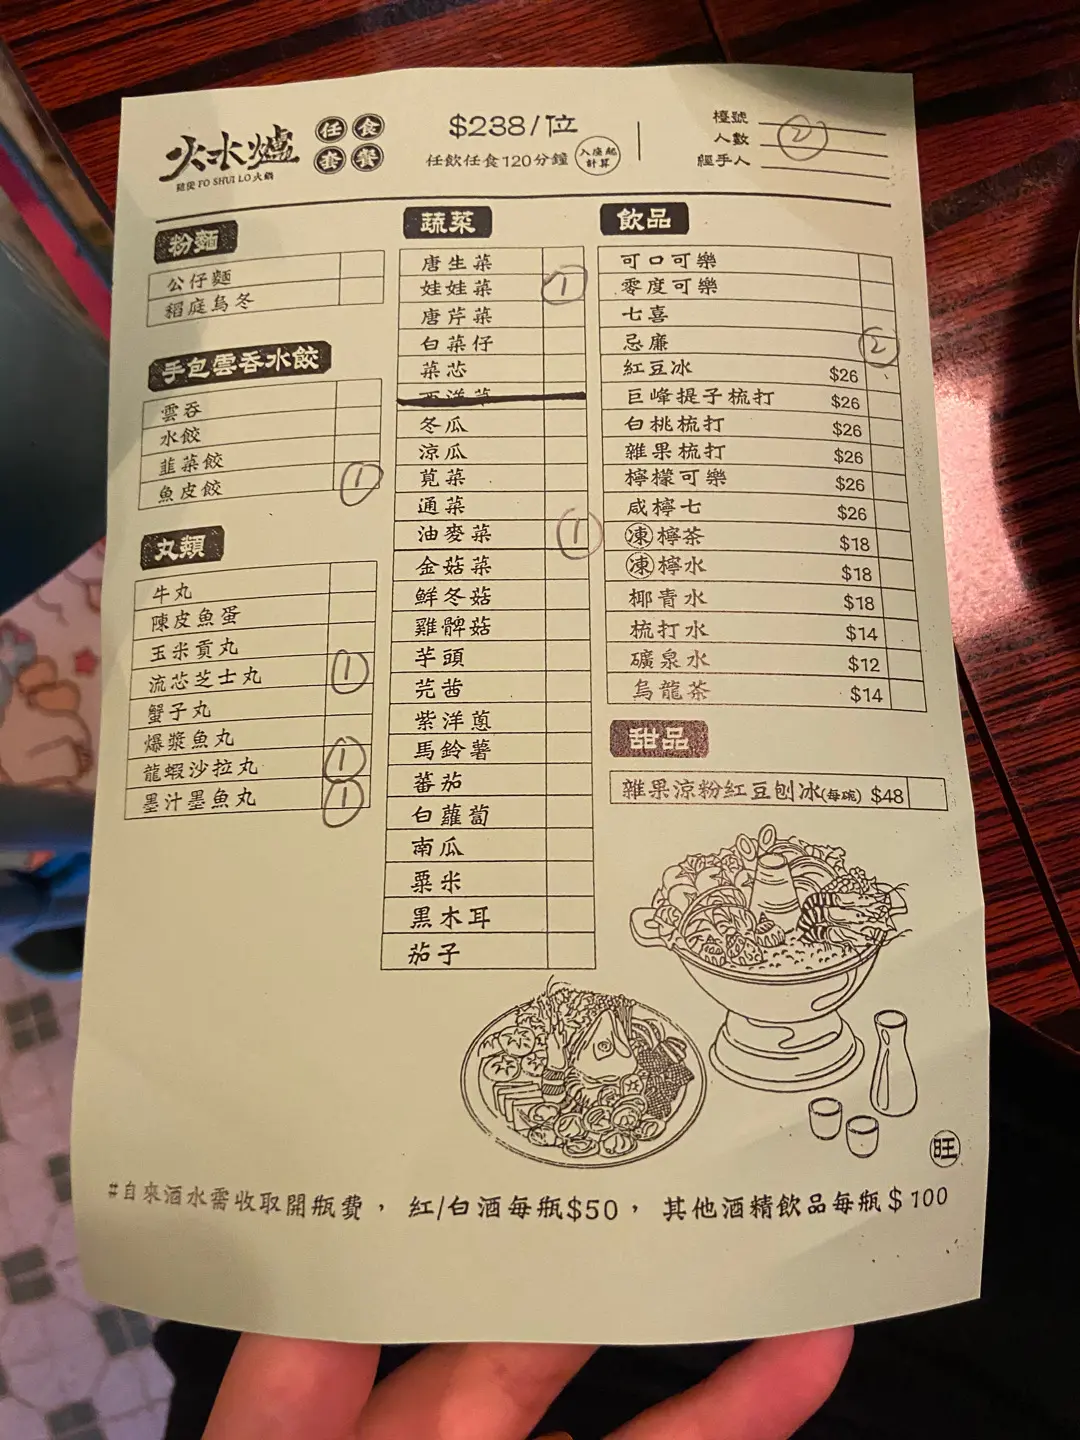 火水爐
隨從 FO SHUI LO 火鍋
任食套餐
$238/位
任飲任食120分鐘 入座起計算
檯號
人數 2
經手人
粉麵
公仔麵
稻庭烏冬
手包雲吞水餃
雲吞
水餃
韮菜餃
魚皮餃 1
丸類
牛丸
陳皮魚蛋
玉米貢丸
流芯芝士丸 1
蟹子丸
爆漿魚丸
龍蝦沙拉丸 1
墨汁墨魚丸 1
蔬菜
唐生菜
娃娃菜 1
唐芹菜
白菜仔
菜芯
西洋菜
冬瓜
涼瓜
莧菜
通菜
油麥菜 1
金菇菜
鮮冬菇
雞髀菇
芋頭
芫茜
紫洋蔥
馬鈴薯
蕃茄
白蘿蔔
南瓜
粟米
黑木耳
茄子
飲品
可口可樂
零度可樂
七喜
忌廉 2
紅豆冰 $26
巨峰提子梳打 $26
白桃梳打 $26
雜果梳打 $26
檸檬可樂 $26
咸檸七 $26
凍檸茶 $18
凍檸水 $18
椰青水 $18
梳打水 $14
礦泉水 $12
烏龍茶 $14
甜品
雜果涼粉紅豆刨冰(每碗) $48
旺
#自來酒水需收取開瓶費， 紅/白酒每瓶$50， 其他酒精飲品每瓶$100